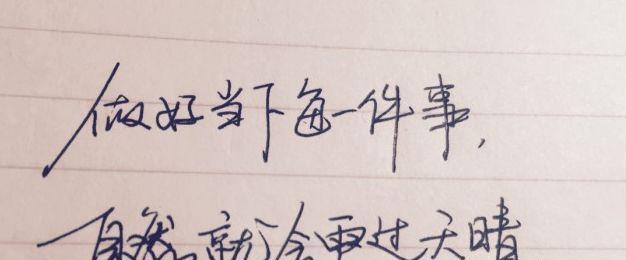 做好当下每一件事，
自然就会雨过天晴